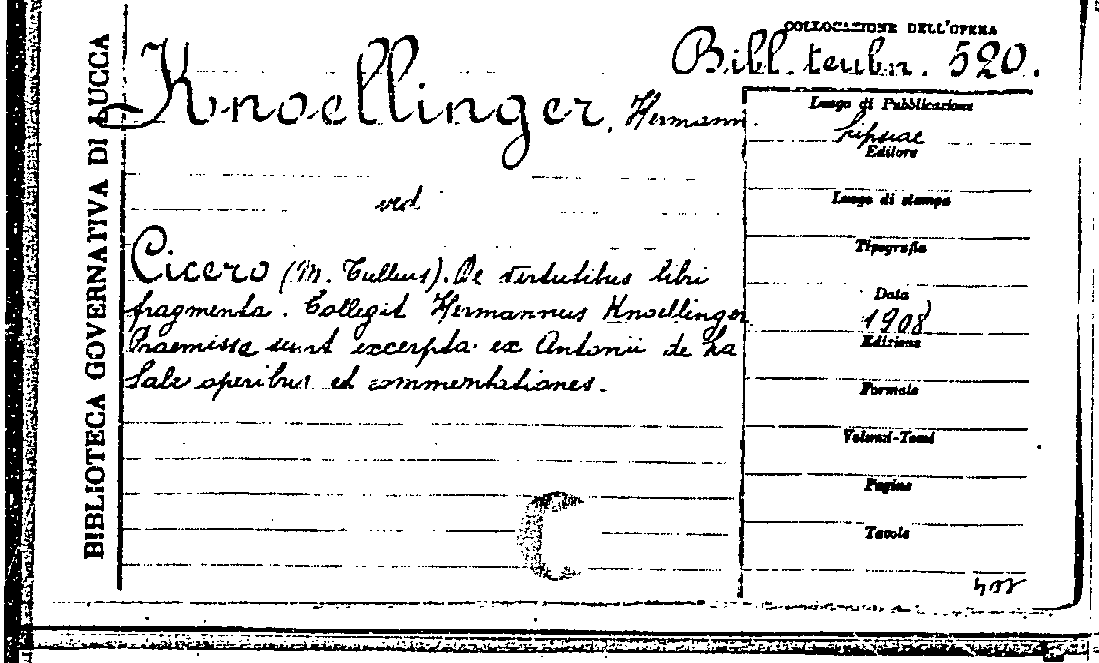 BIBLIOTECA GOVERNATIVA DI LUCCA
COLLOCAZIONE DELL'OPERA
Bibl. teubn. 520.
Knoellinger, Hermann.
ved
Cicero (M. Tullius). De virtutibus libri
fragmenta. Collegit Hermannus Knoellinger.
Praemissa sunt excerpta ex Antonii de La
Sale operibus et commentationes.
Luogo di Pubblicazione
Lipsiae
Editore
Luogo di stampa
Tipografia
Data
1908
Edizione
Formato
Volumi-Tomi
Pagine
Tavole